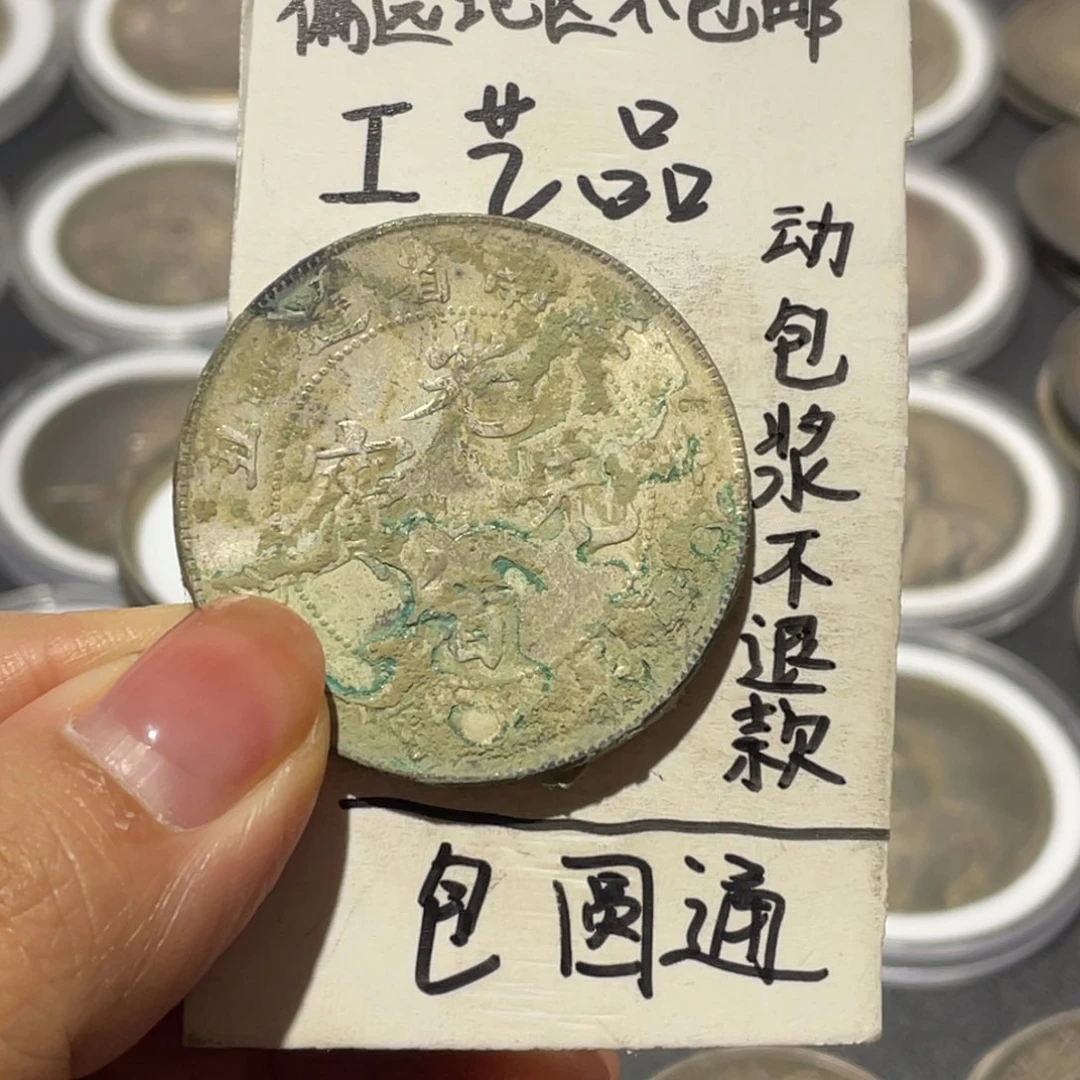 偏远地区不包邮
工艺品
动包浆不退款
省造
光緒元寶
包圆通